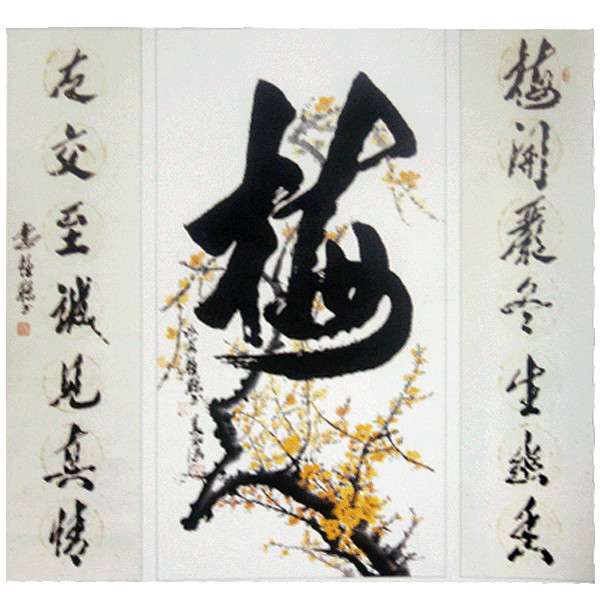 梅開嚴冬生幽香
梅
友交至誠見真情